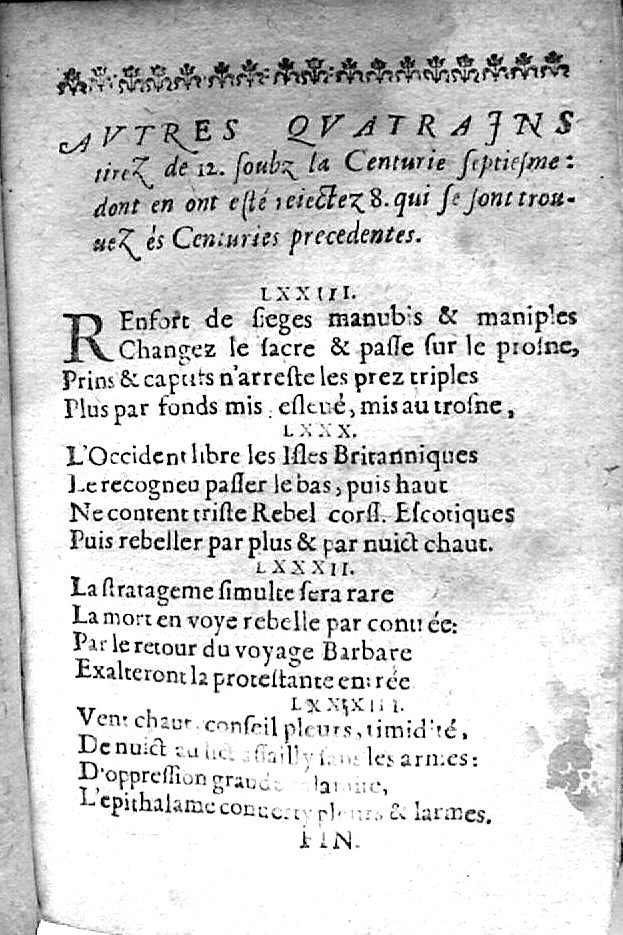 AVTRES QVATRAINS
tirez de 12. ſoubz la Centurie ſeptieſme:
dont en ont eſté reiectez 8. qui ſe ſont trou-
uez és Centuries precedentes.
LXXIII.
REnfort de ſieges manubis & maniples
Changez le ſacre & paſſe ſur le proſne,
Prins & captifs n'arreſte les prez triples
Plus par fonds mis eſleué, mis au troſne,
LXXX.
L'Occident libre les Iſles Britanniques
Le recogneu paſſer le bas, puis haut
Ne content triſte Rebel corſſ. Eſcotiques
Puis rebeller par plus & par nuict chaut.
LXXXII.
La ſtratageme ſimulte ſera rare
La mort en voye rebelle par contrée:
Par le retour du voyage Barbare
Exalteront la proteſtante entrée
LXXXIII.
Vent chaut, conſeil pleurs, timidité,
De nuict au lict aſſailly ſans les armes:
D'oppreſſion grande calamité,
L'epithalame conuerty pleurs & larmes.
FIN.